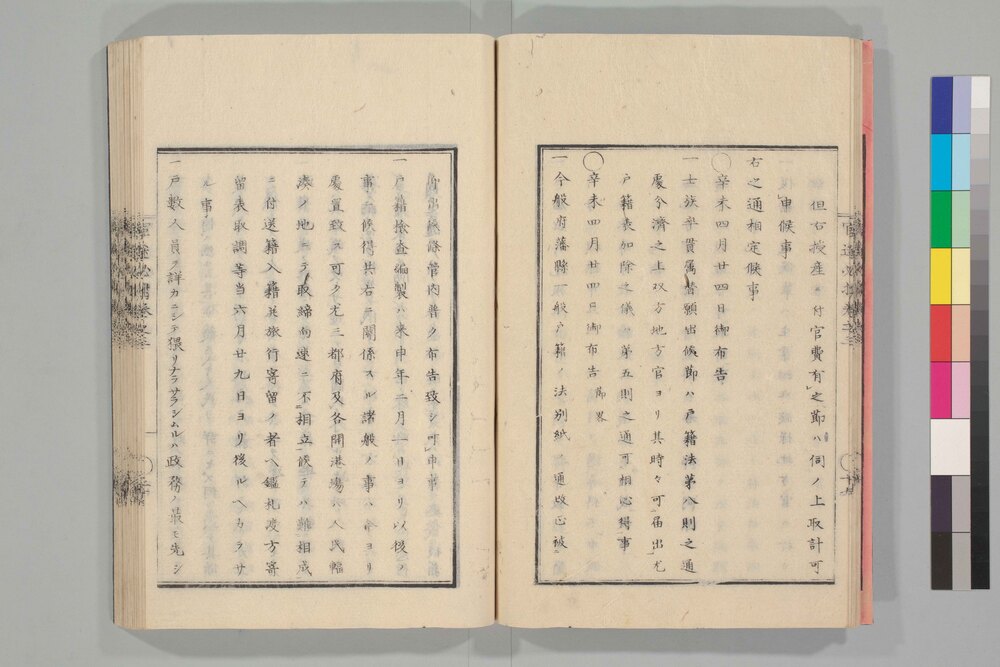 但右授産ニ付官費有之節ハ伺ノ上取計可
申候事
右之通相定候事
〇辛未四月廿四日御布告
一士族卒貫属替願出候節ハ戸籍法第八則之通
處今済之上双方地方官ヨリ其時々可届出尤
戸籍表加除之儀ハ第五則之通可相心得事
〇辛未四月廿四日御布告 節畧
一今般府藩縣一般戸籍ノ法別紙ノ通改正被
仰出候條管内普ク布告致シ可申事
一戸籍検査編製ハ来申年二月一日ヨリ以後ノ
事ニ候得共右ニ関係スル諸般ノ事ハ今ヨリ
處置致ス可ク尤三都府及各開港場ハ人民輻
湊ノ地ニシテ取締向速ニ不相立候テハ難相成
ニ付送籍入籍並旅行寄留ノ者ヘ鑑札渡方寄
留表取調等当六月廿九日ヨリ後ルヘカラサ
ル事
一戸数人員ヲ詳カニシテ猥リナラサラシムルハ政務ノ最モ先シ